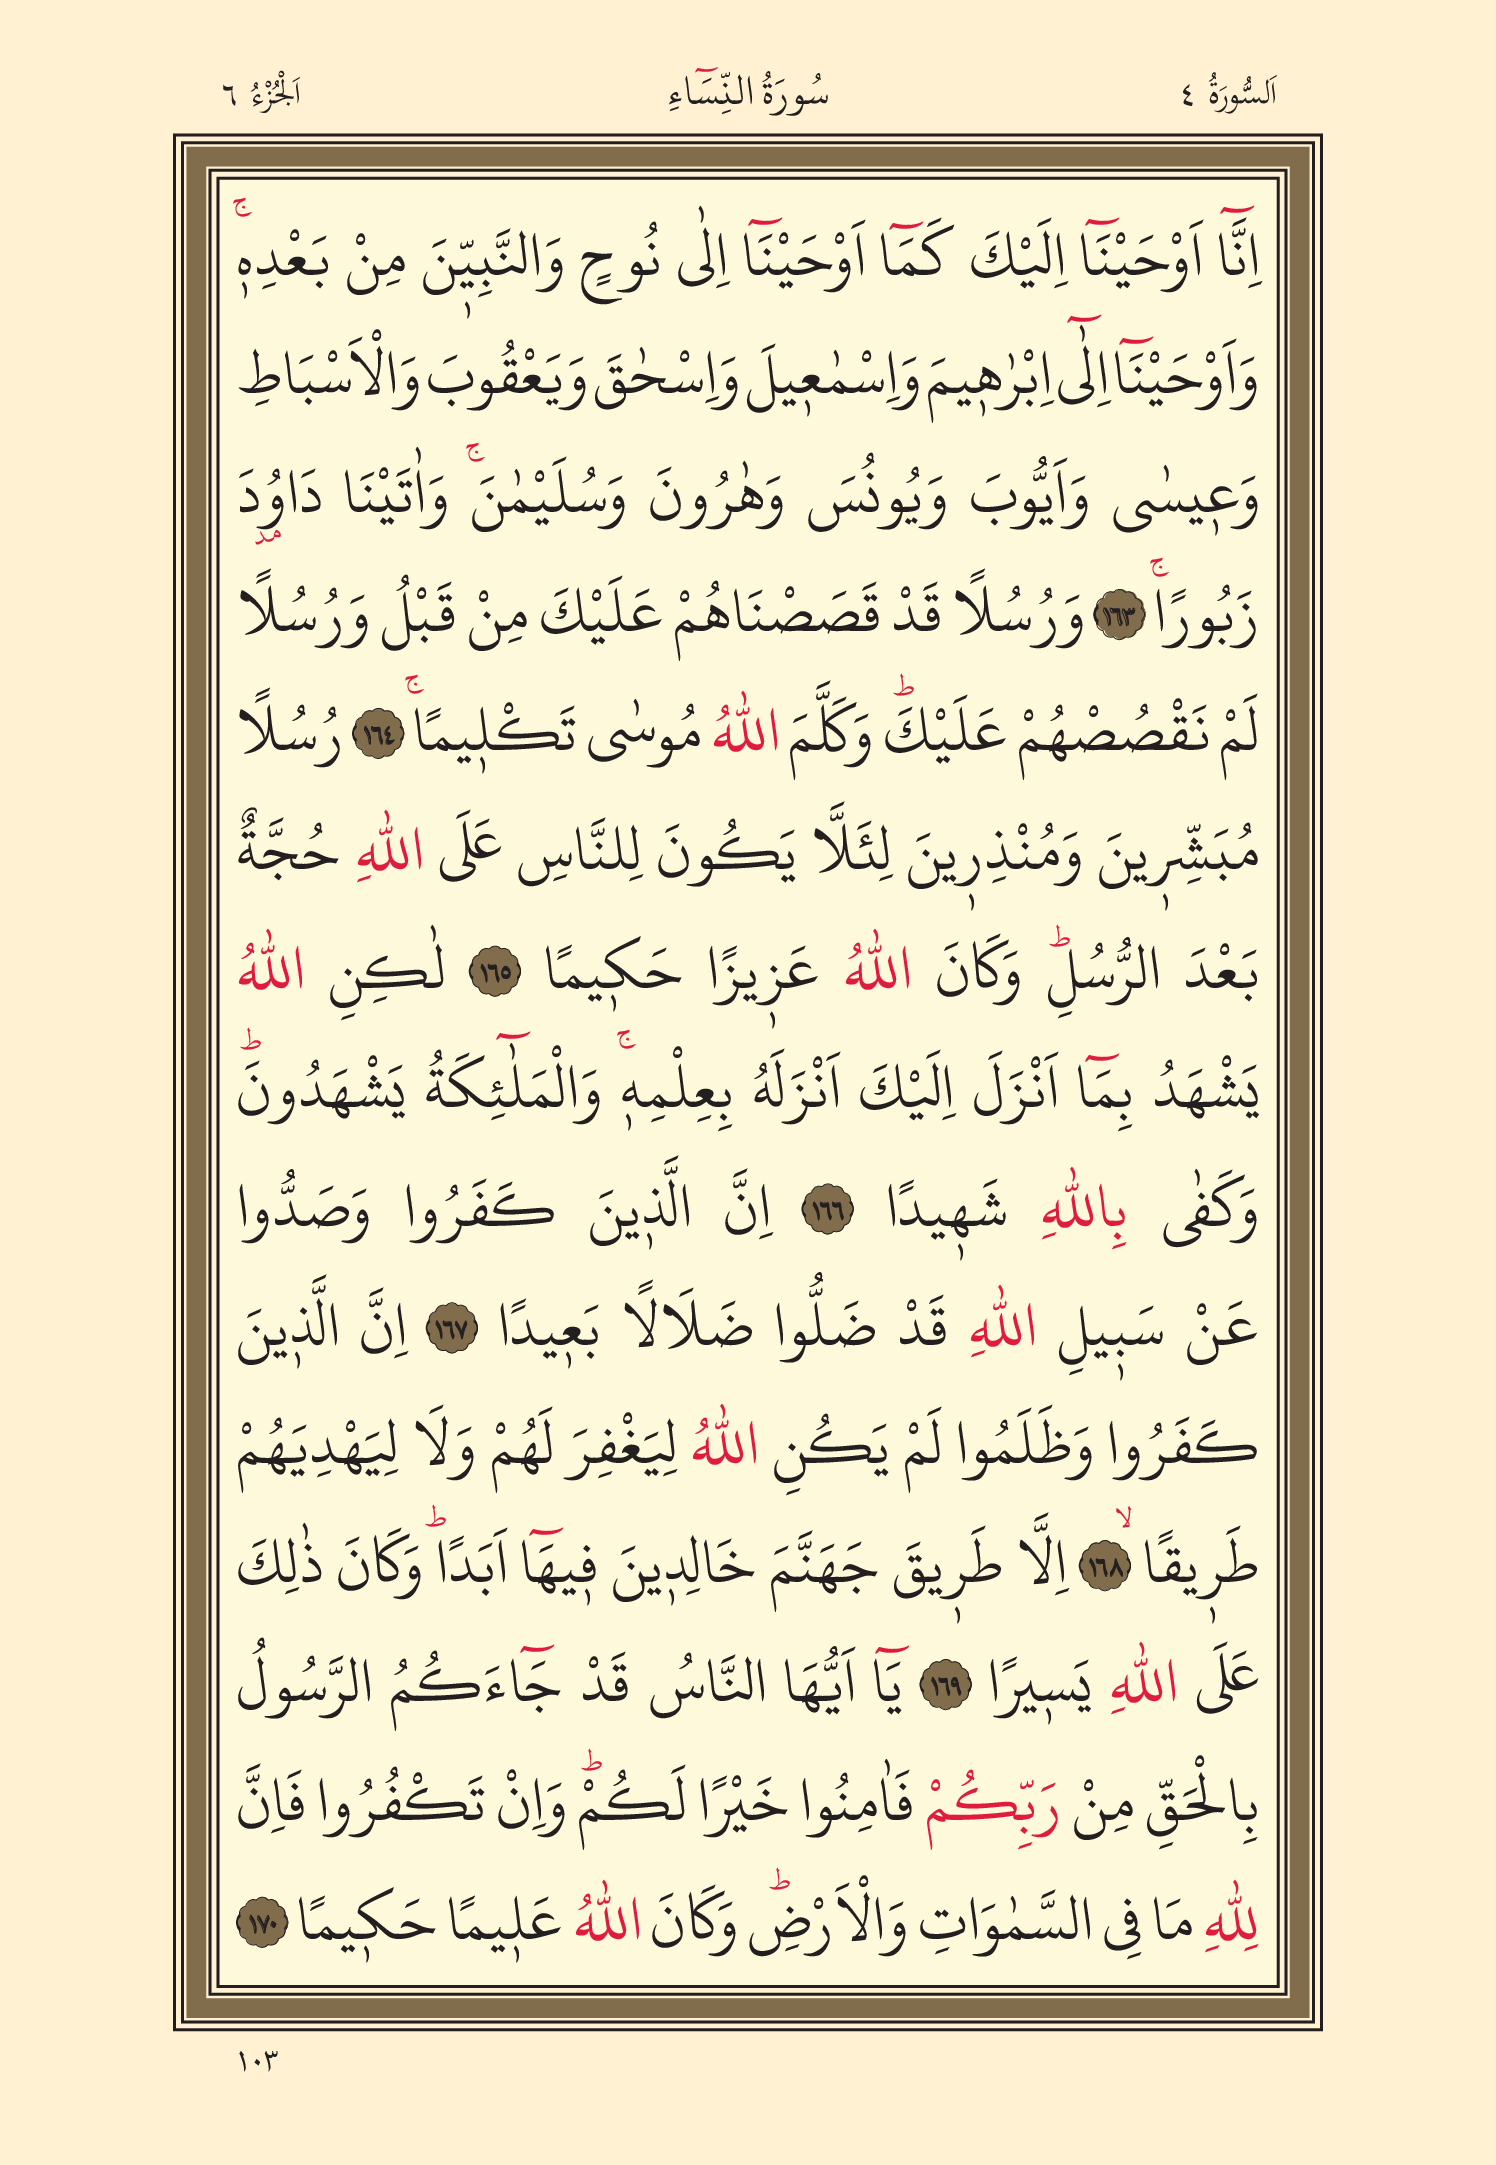 اَلسُّورَةُ ٤ سُورَةُ النِّسَٓاءِ اَلْجُزْءُ ٦
اِنَّٓا اَوْحَيْنَٓا اِلَيْكَ كَمَٓا اَوْحَيْنَٓا اِلٰى نُوحٍ وَالنَّبِيّٖنَ مِنْ بَعْدِهٖۚ
وَاَوْحَيْنَٓا اِلٰٓى اِبْرٰهٖيمَ وَاِسْمٰعٖيلَ وَاِسْحٰقَ وَيَعْقُوبَ وَالْاَسْبَاطِ
وَعٖيسٰى وَاَيُّوبَ وَيُونُسَ وَهٰرُونَ وَسُلَيْمٰنَۚ وَاٰتَيْنَا دَاوُ۫دَ
زَبُورًاۚ ﴿١٦٣﴾ وَرُسُلًا قَدْ قَصَصْنَاهُمْ عَلَيْكَ مِنْ قَبْلُ وَرُسُلًا
لَمْ نَقْصُصْهُمْ عَلَيْكَؕ وَكَلَّمَ اللّٰهُ مُوسٰى تَكْلٖيمًاۚ ﴿١٦٤﴾ رُسُلًا
مُبَشِّرٖينَ وَمُنْذِرٖينَ لِئَلَّا يَكُونَ لِلنَّاسِ عَلَى اللّٰهِ حُجَّةٌ
بَعْدَ الرُّسُلِؕ وَكَانَ اللّٰهُ عَزٖيزًا حَكٖيمًا ﴿١٦٥﴾ لٰكِنِ اللّٰهُ
يَشْهَدُ بِمَٓا اَنْزَلَ اِلَيْكَ اَنْزَلَهُ بِعِلْمِهٖۚ وَالْمَلٰٓئِكَةُ يَشْهَدُونَؕ
وَكَفٰى بِاللّٰهِ شَهٖيدًا ﴿١٦٦﴾ اِنَّ الَّذٖينَ كَفَرُوا وَصَدُّوا
عَنْ سَبٖيلِ اللّٰهِ قَدْ ضَلُّوا ضَلَالًا بَعٖيدًا ﴿١٦٧﴾ اِنَّ الَّذٖينَ
كَفَرُوا وَظَلَمُوا لَمْ يَكُنِ اللّٰهُ لِيَغْفِرَ لَهُمْ وَلَا لِيَهْدِيَهُمْ
طَرٖيقًاۙ ﴿١٦٨﴾ اِلَّا طَرٖيقَ جَهَنَّمَ خَالِدٖينَ فٖيهَٓا اَبَدًاؕ وَكَانَ ذٰلِكَ
عَلَى اللّٰهِ يَسٖيرًا ﴿١٦٩﴾ يَٓا اَيُّهَا النَّاسُ قَدْ جَٓاءَكُمُ الرَّسُولُ
بِالْحَقِّ مِنْ رَبِّكُمْ فَاٰمِنُوا خَيْرًا لَكُمْؕ وَاِنْ تَكْفُرُوا فَاِنَّ
لِلّٰهِ مَا فِى السَّمٰوَاتِ وَالْاَرْضِؕ وَكَانَ اللّٰهُ عَلٖيمًا حَكٖيمًا ﴿١٧٠﴾
١٠٣